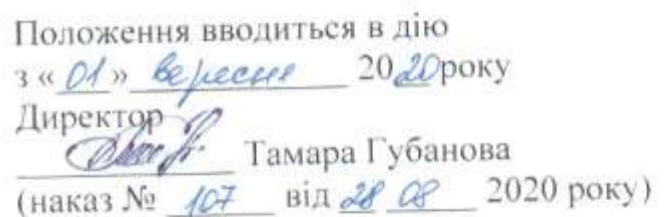 Положення вводиться в дію
з «01» вересня 2020року
Директор
Тамара Губанова
(наказ № 107 від 28 08 2020 року)